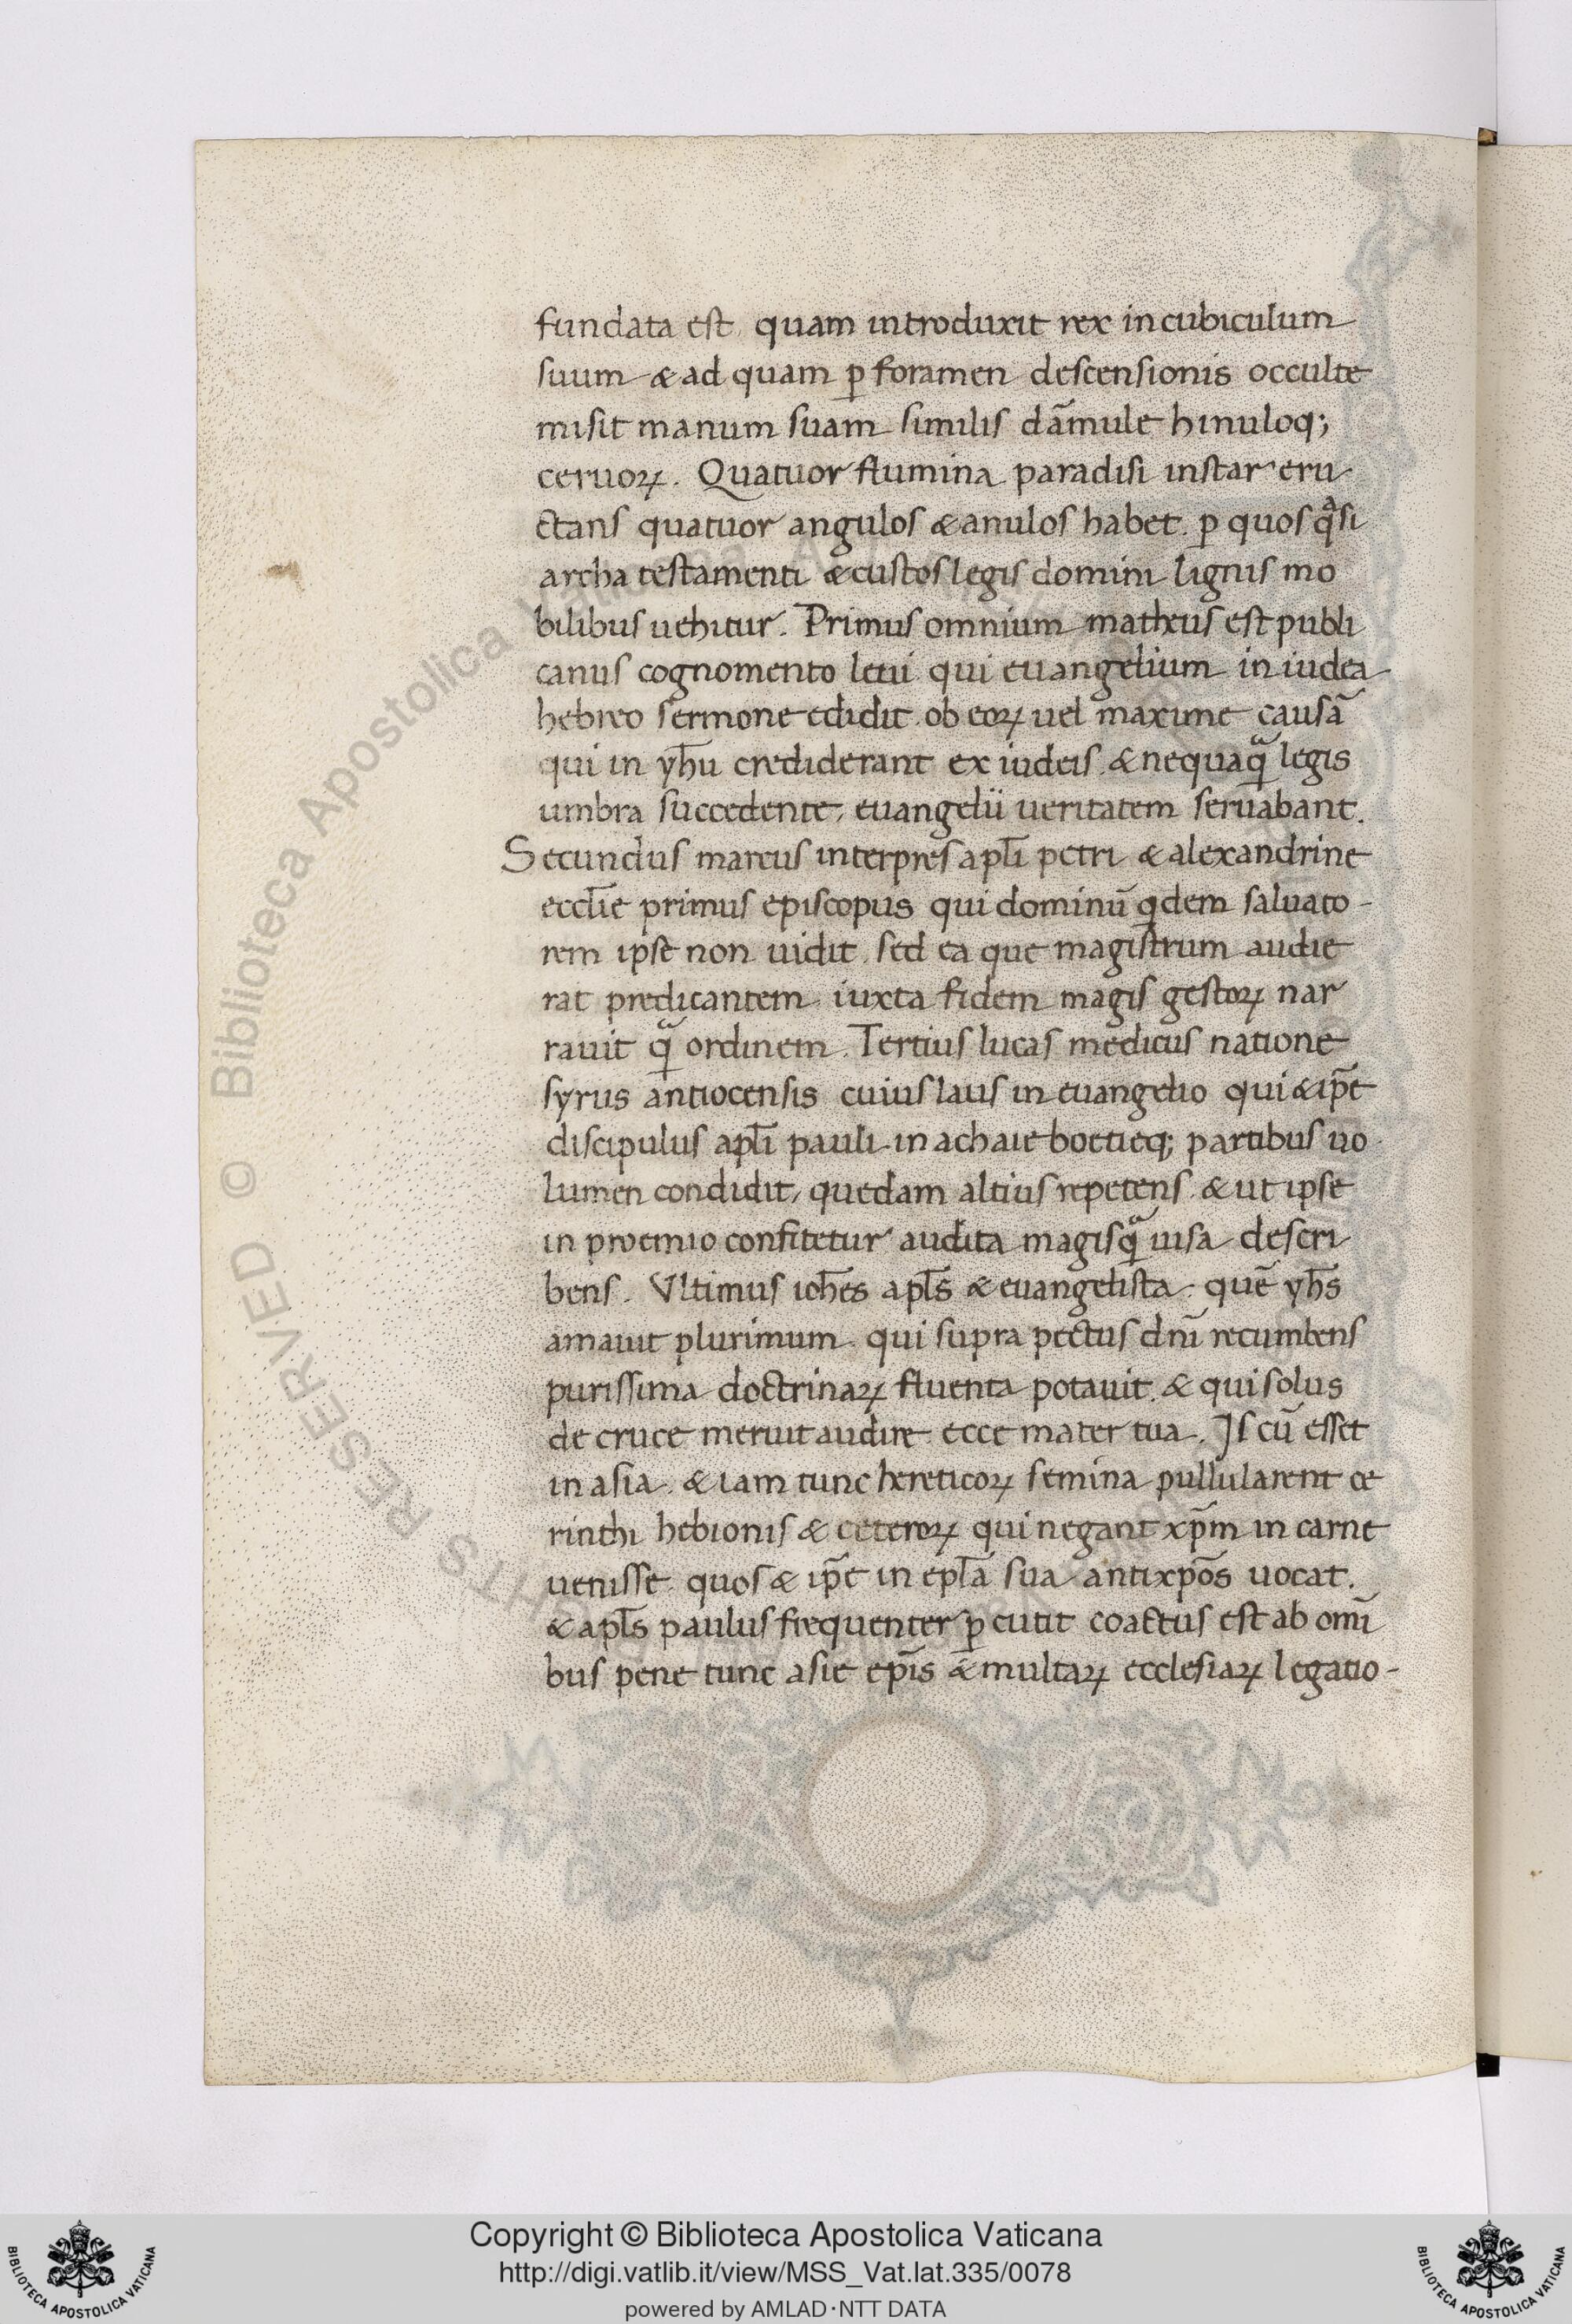 fundata est. quam introduxit rex in cubiculum
suum & ad quam ꝑ foramen descensionis occulte
misit manum suam similis dãmule hinuloq;
ceruoꝝ. Quatuor flumina paradisi instar eru
ctans quatuor angulos & anulos habet. ꝑ quos qͣsi
archa testamenti & custos legis domini lignis mo
bilibus uehitur. Primus omnium matheus est publi
canus cognomento leui qui euangelium in iudea
hebreo sermone edidit. ob eoꝝ uel maxime causã
qui in yħu crediderant ex iudeis. & nequaqͣ legis
umbra succedente, euangelii ueritatem seruabant.
Secundus marcus interpres apłi petri & alexandrine
eccłie primus episcopus qui dominũ qdem saluato-
rem ipse non uidit. sed ea que magistrum audie
rat predicantem iuxta fidem magis gestoꝝ nar
rauit qͣ ordinem. Tertius lucas medicus natione
syrus antiocensis cuius laus in euangelio qui & ip̃e
discipulus apłi pauli in achaie boetieq; partibus uo
lumen condidit, quedam altius repetens. & ut ipse
in proemio confitetur audita magisqͣ uisa descri
bens. Vltimus ioħes apłs & euangelista. quẽ yħs
amauit plurimum. qui supra pectus dñi recumbens
purissima doctrinaꝝ fluenta potauit. & qui solus
de cruce meruit audire ecce mater tua. Is cũ esset
in asia. & iam tunc hereticoꝝ semina pullularent ce
rinthi hebionis & ceteroꝝ qui negant xp̃m in carne
uenisse. quos & ip̃e in epła sua antixp̃os uocat.
& apłs paulus frequenter ꝑcutit coactus est ab omĩ
bus pene tunc asie ep̃is & multaꝝ ecclesiaꝝ legatio-
© Biblioteca Apostolica Vaticana
RIGHTS RESERVED
Copyright © Biblioteca Apostolica Vaticana
http://digi.vatlib.it/view/MSS_Vat.lat.335/0078
powered by AMLAD·NTT DATA
BIBLIOTECA APOSTOLICA VATICANA
BIBLIOTECA APOSTOLICA VATICANA